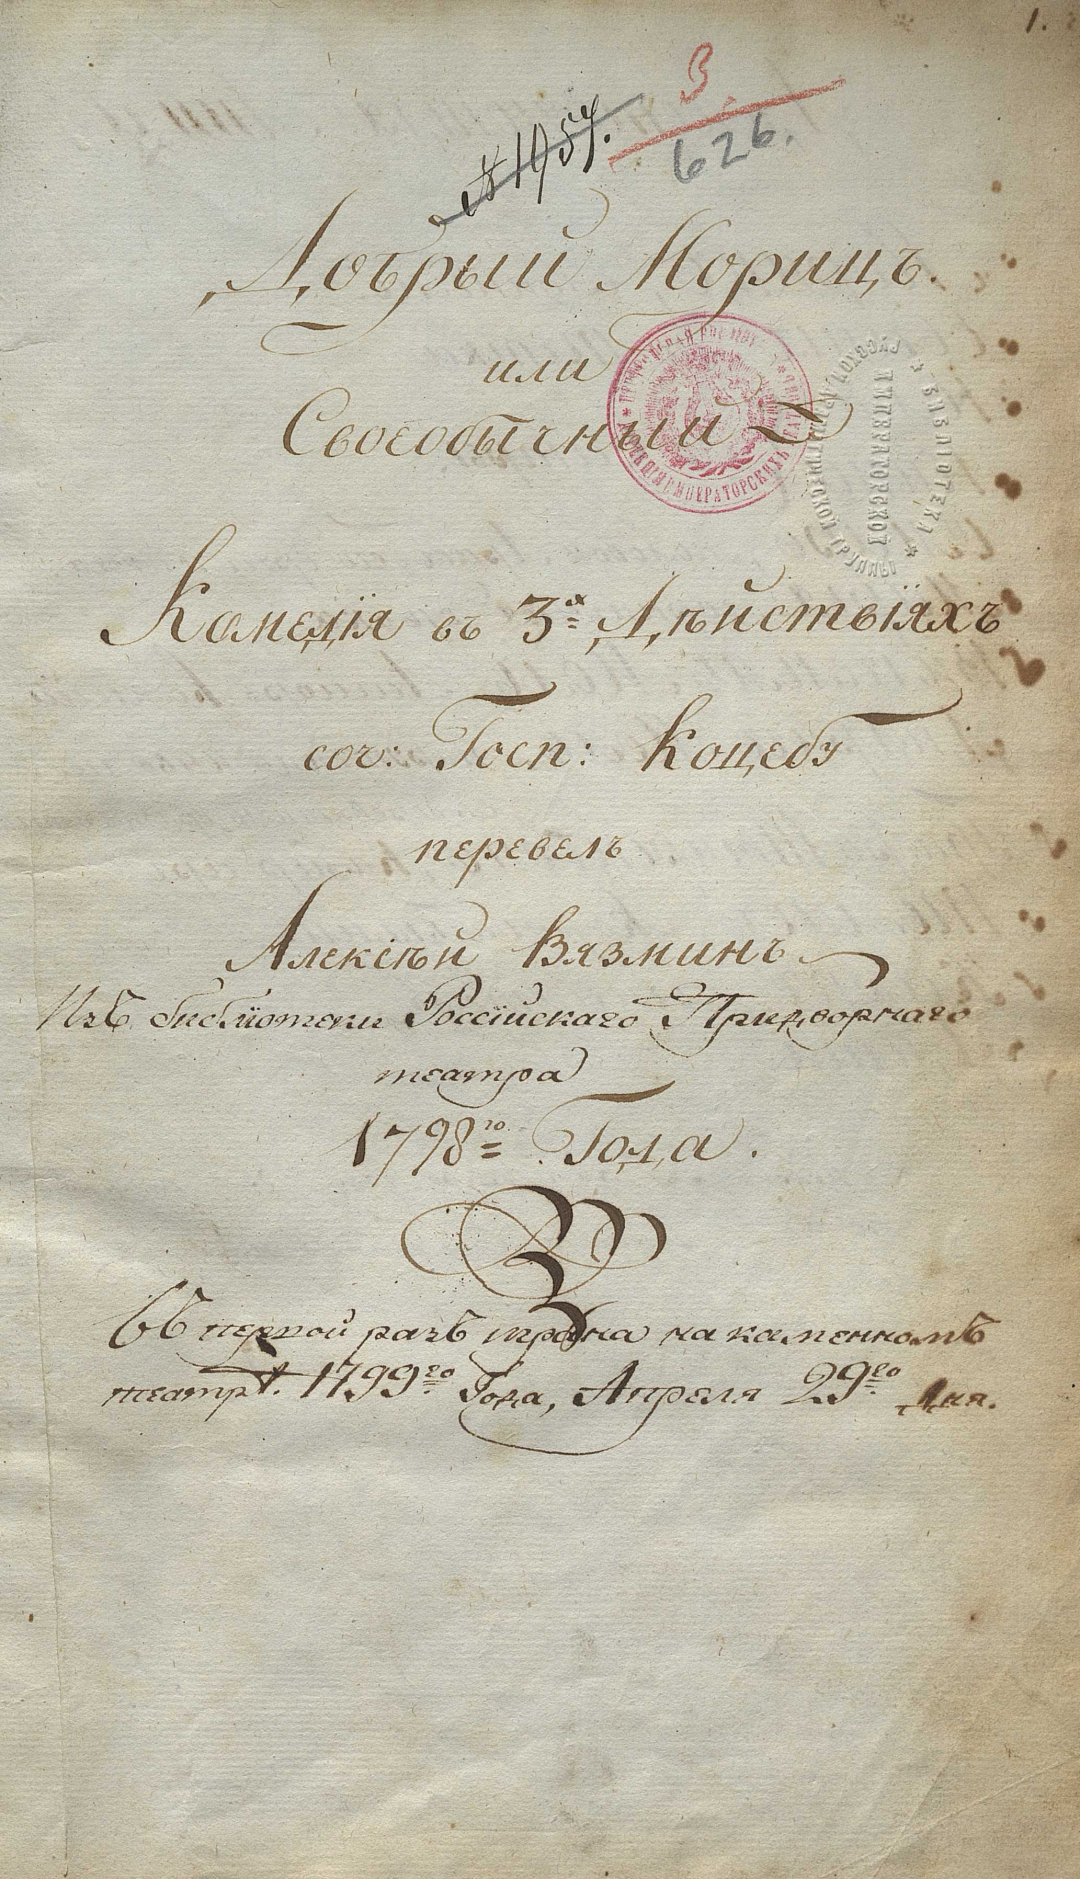 1.
3.
626.
№ 1957.
Добрый Морицъ.
или
Своеобычный
БИБЛІОТЕКА
ИМПЕРАТОРСКОЙ
РУССКОЙ ДРАМАТИЧЕСКОЙ ТРУППЫ
Комедія въ 3хъ Дѣйствіяхъ
соч: Госп: Коцебу
перевелъ
Алексѣй Вязминъ
Изъ библіотеки Россійскаго Придворнаго
театра
1798го Года.
Въ первой разъ играна на каменномъ
театрѣ. 1799го Года, Апреля 29го Дня.